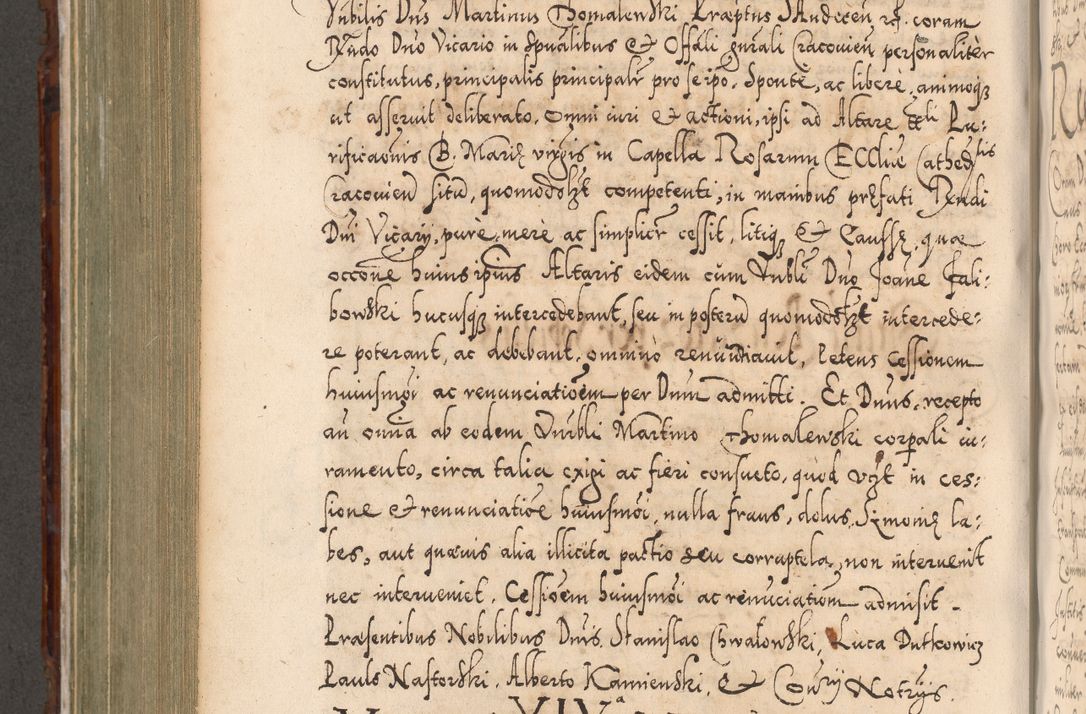 Vnbilis Dns Martinus Thomalewski Præptus S Andreæ, coram
Rndo Dno Vicario in Spualibus & Offali gnrali Cracovien personalitèr
constitutus, principalis principalr pro se ipo. Sponte, ac liberè, animoq;
ut asseruit deliberato. Omni iuri & actioni, ipsi ad Altare tli Pu-
rificaonis B. Mariæ virgis in Capella Rosarum Ecclie Cathedlis
Cracovien situ, quomodolzt competenti, in manibus præfati Rndi
Dni Vicarij, purè, merè ac simplicr cessit, litiq; & Caussæ, quæ
occone huius ipsius Altaris eidem cùm Vnbli Dno Joane Fali-
bowski hucusq; intercedebant, seu in posteru quomodolzt intercede-
re poterant, ac debebant, omninò renunciauit. Petens Cessionem
huiusmoi ac renunciationem per Dnm admitti. Et Dnus, recepto
an omnia ab eodem Vnrbli Martino Thomalewski corpali iu-
ramento, circa talia exigi ac fieri consueto, quod vzt in ces-
sione & renunciatioe huiusmoi, nulla fraus, dolus, Symoniæ la-
bes, aut quæuis alia illicita pactio seu corruptela, non interuenit
nec interueniet. Cessioem huiusmoi ac renuciationem admisit.
Præsentibus Nobilibus Dnis Stanislao Chwałowski, Luca Dutkowicz
Pauls Nastorski, Alberto Kamienski, & Coury Notrijs.
XIVa